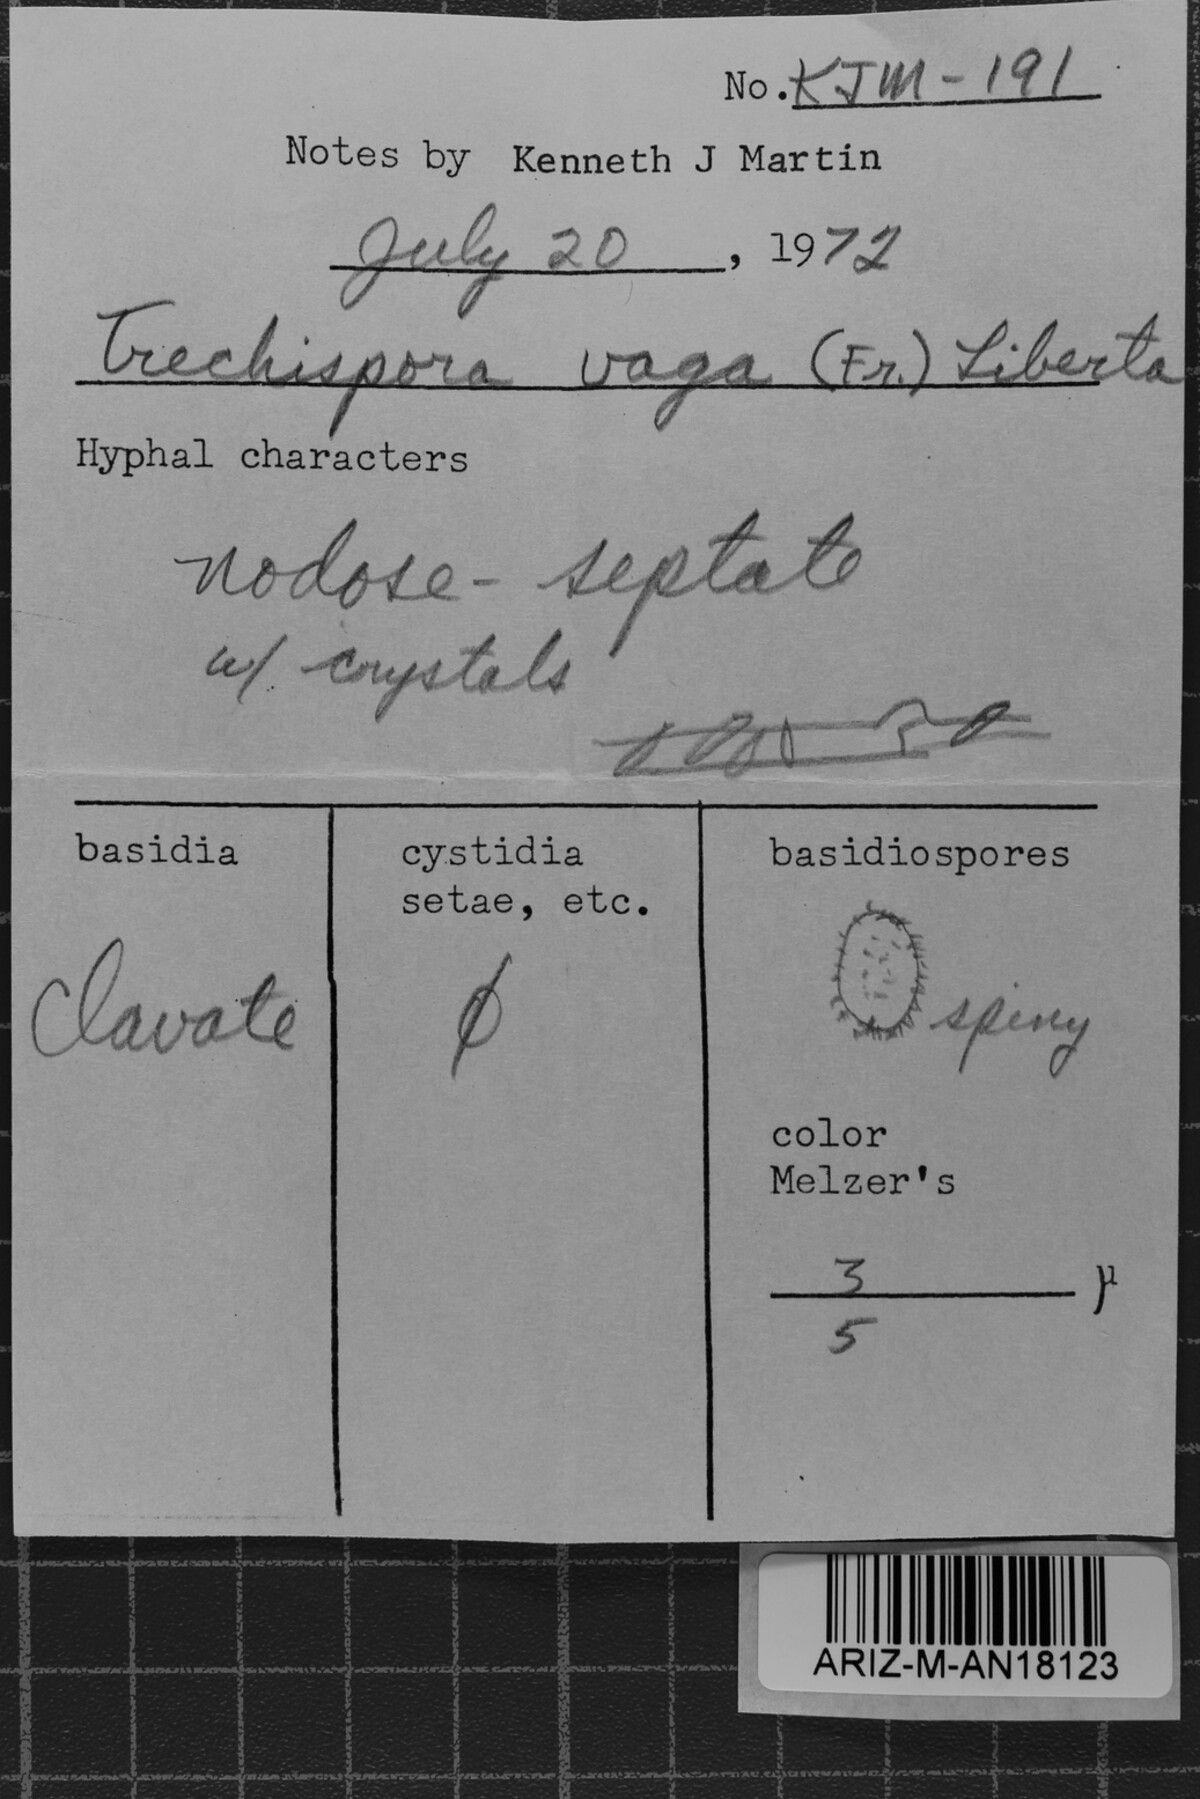 No. KJM-191
Notes by Kenneth J Martin
July 20, 1972
Trechispora vaga (Fr.) Liberta
Hyphal characters
nodose-septate
w/ crystals
basidia
clavate
cystidia
setae, etc.
ϕ
basidiospores
spiny
color
Melzer's
3 µ
5
ARIZ-M-AN18123